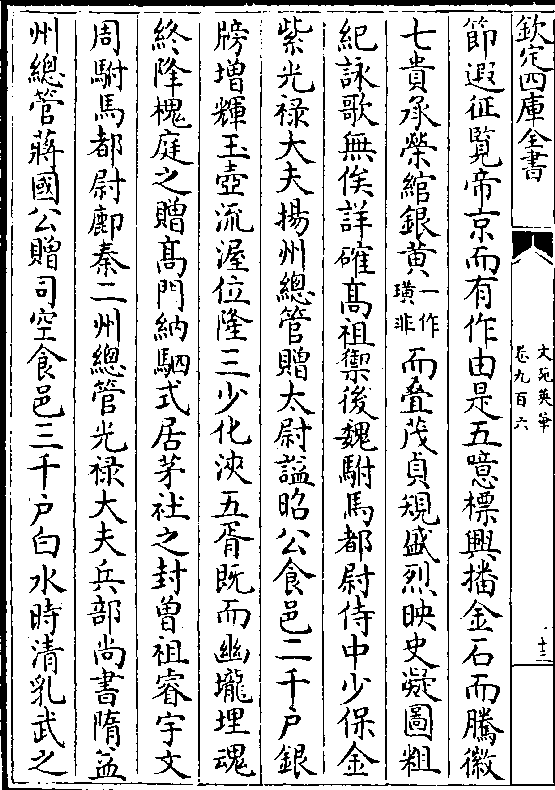 欽定四庫全書
文苑英華
卷九百六
十三
節遐征覽帝京而有作由是五噫標興播金石而騰徽
七貴承榮綰銀黄一作璜非而叠茂貞規盛烈映史凝圖粗
紀詠歌無俟詳確高祖禦後魏駙馬都尉侍中少保金
紫光禄大夫揚州總管贈太尉謚昭公食邑二千户銀
牓增輝玉壺流渥位隆三少化浹五胥既而幽壠埋魂
終降槐庭之贈髙門納駟式居茅社之封曾祖睿宇文
周駙馬都尉鄜秦二州總管光禄大夫兵部尚書隋益
州總管蔣國公贈司空食邑三千户白水時清乳武之